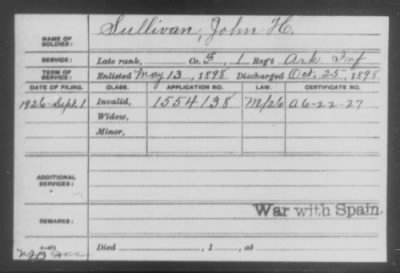 NAME OF SOLDIER: Sullivan, John H.
SERVICE: Late rank, Co. F, 1 Reg't Ark Inf
TERM OF SERVICE: Enlisted May 13, 1898 Discharged Oct. 25, 1898
DATE OF FILING. CLASS. APPLICATION NO. LAW. CERTIFICATE NO.
1926-Sept. 1 Invalid, 1554138 M/26 A6-22-27
Widow,
Minor,
ADDITIONAL SERVICES:
War with Spain.
REMARKS:
Died , 1 , at